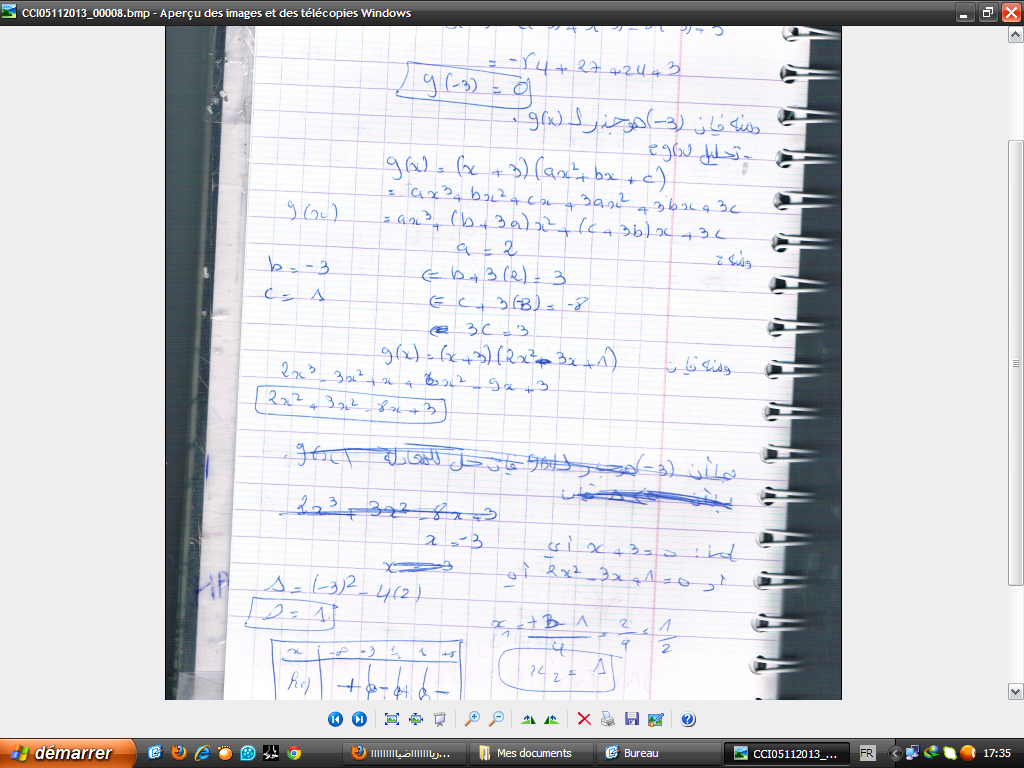 CCI05112013_00008.bmp - Aperçu des images et des télécopies Windows
= -54 + 27 + 24 + 3
g(-3) = 0
ومنه فإن (-3) هو جذر لـ g(x).
- تحليل g(x):
g(x) = (x + 3)(ax² + bx + c)
= ax³ + bx² + cx + 3ax² + 3bx + 3c
g(x) = ax³ + (b + 3a)x² + (c + 3b)x + 3c
ومنه: a = 2
b = -3 ⇐ b + 3(2) = 3
c = 1 ⇐ c + 3(-3) = -8
⇐ 3c = 3
ومنه فإن g(x) = (x+3)(2x² - 3x + 1)
2x³ - 3x² + x + 6x² - 9x + 3
2x² + 3x² - 8x + 3
بما أن (-3) هو جذر لـ g(x) فإن حل المعادلة g(x)
2x³ + 3x² - 8x + 3
x = -3 إما: x + 3 = 0 أي
x = 3
أو 2x² - 3x + 1 = 0 أي
Δ = (-3)² - 4(2)
Δ = 1
x₁ = +3 - 1 / 4 = 2/4 = 1/2
x₂ = 1
x -∞ -3 ½ 1 +∞
+ 0 - 0 + 0 -
démarrer
Mes documents
Bureau
CCI05112013_...
FR
17:35